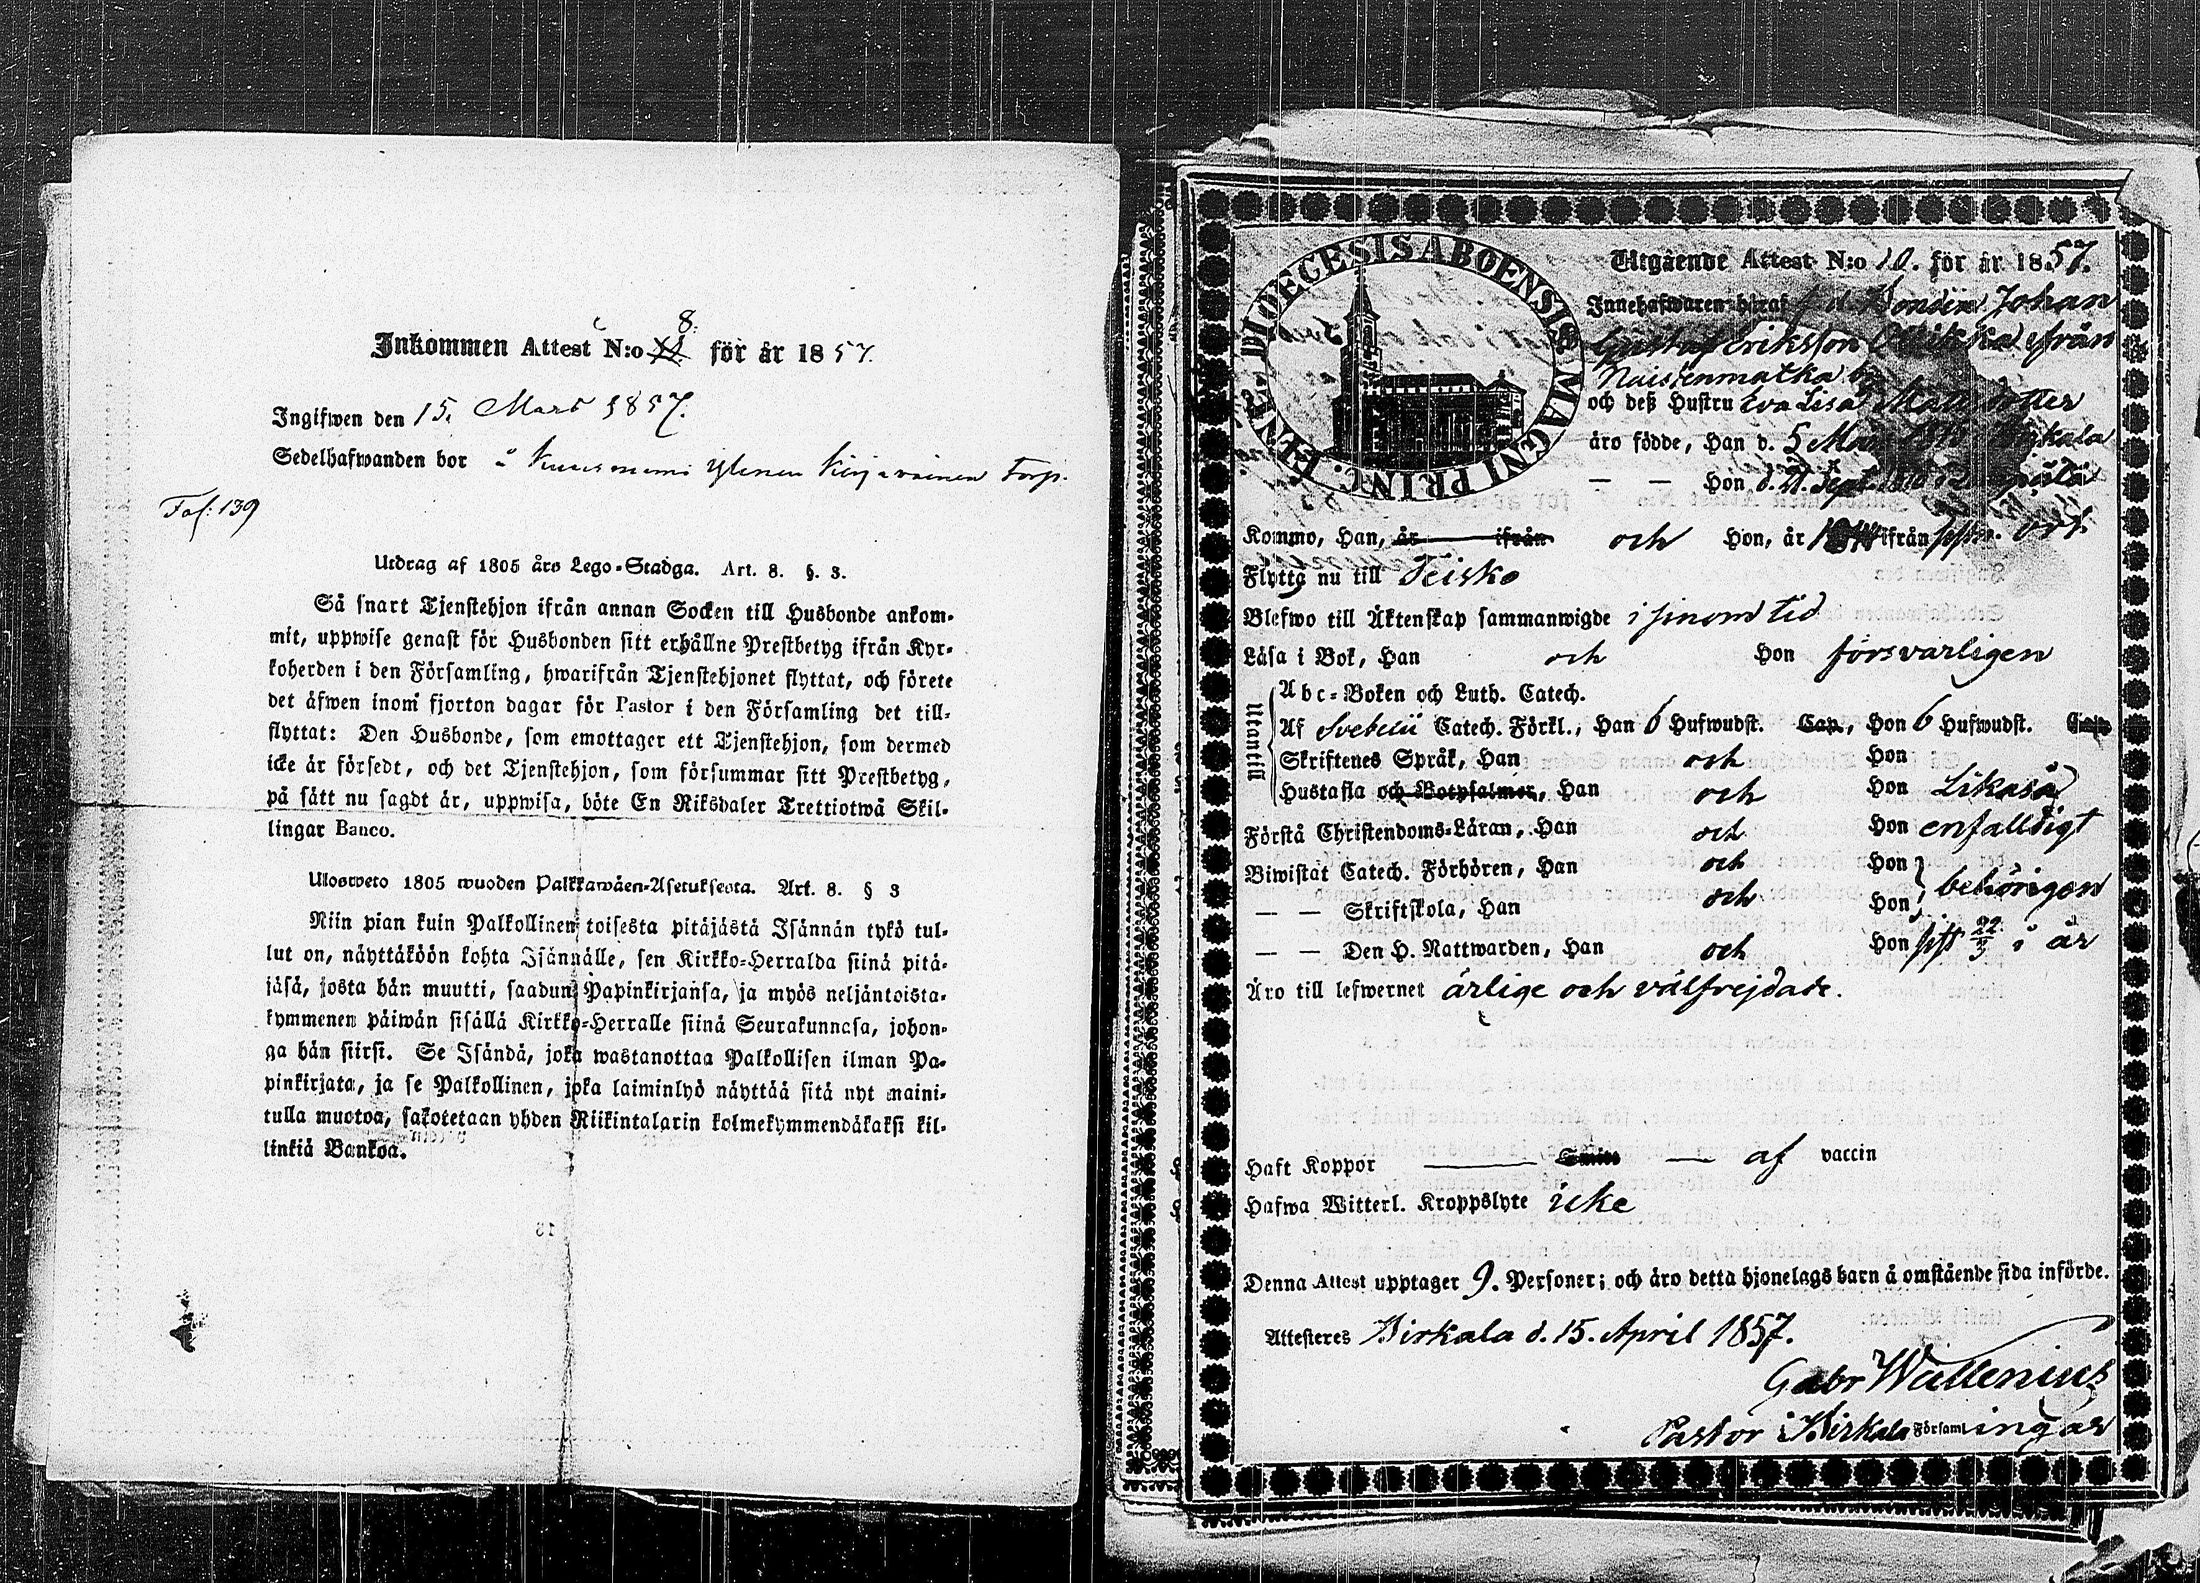 Inkommen Attest N:o 8. för år 1857.
Ingifwen den 15. Mars 1857.
Sedelhafwanden bor å Kuusniemi Ylenen Kirjavainen Torp.
Fol: 139
Utdrag af 1805 års Lego-Stadga. Art. 8. §. 3.
Så snart Tjenstehjon ifrån annan Socken till Husbonde ankom-
mit, uppwise genast för Husbonden sitt erhållne Prestbetyg ifrån Kyr-
koherden i den Församling, hwarifrån Tjenstehjonet flyttat, och förete
det äfwen inom fjorton dagar för Pastor i den Församling det till-
flyttat: Den Husbonde, som emottager ett Tjenstehjon, som dermed
icke är försedt, och det Tjenstehjon, som försummar sitt Prestbetyg,
på sätt nu sagdt är, uppwisa, böte En Riksdaler Trettiotwå Skil-
lingar Banco.
Ulosweto 1805 wuoden Palkkawäen-Asetuksesta. Art. 8. § 3
Niin pian kuin Palkollinen toisesta pitäjästä Isännän tykö tul-
lut on, näyttäköön kohta Isännälle, sen Kirkko-Herralda siinä pitä-
jäsä, josta hän muutti, saadun Papinkirjansa, ja myös neljäntoista-
kymmenen päiwän sisällä Kirkko-Herralle siinä Seurakunnasa, johon-
ga hän siirsi. Se Isändä, joka wastanottaa Palkollisen ilman Pa-
pinkirjata, ja se Palkollinen, joka laiminlyö näyttää sitä nyt maini-
tulla muotoa, sakotetaan yhden Riikintalarin kolmekymmendäkaksi kil-
linkiä Bankoa.
DIOECESIS ABOENSIS MAGNI PRINC.
Utgående Attest N:o 10. för år 1857.
Innehafwaren häraf f d. Bonden Johan
Gustaf Eriksson ifrån
Naistenmatka by
och deß Hustru Eva Lisa Mattsdotter
äro födde, Han d. 5 Birkala
— — Hon d. 21. Sept.
Kommo, Han, är ifrån och Hon, år ifrån ort.
Flytta nu till Teisko
Blefwo till Äktenskap sammanwigde i sinom tid
Läsa i Bok, Han och Hon försvarligen
Utantill
Abc-Boken och Luth. Catech.
Af Svebelii Catech. Förkl., Han 6 Hufwudst. Cap., Hon 6 Hufwudst. Cap
Skriftenes Språk, Han och Hon
Hustafla och Botpsalmer, Han och Hon Likaså
Förstå Christendoms-Läran, Han och Hon enfalldigt
Biwistat Catech. Förhören, Han och Hon
— — Skriftskola, Han och Hon behörigen
— — Den H. Nattwarden, Han och Hon sist 22/3 i år
Äro till lefwernet ärlige och välfrejdade.
Haft Koppor — — af vaccin
Hafwa Witterl. Kroppslyte icke
Denna Attest upptager 9. Personer; och äro detta hjonelags barn å omstående sida införde.
Attesteres Birkala d. 15. April 1857.
Gabr Wallenius
Pastor i Birkala Församlingar